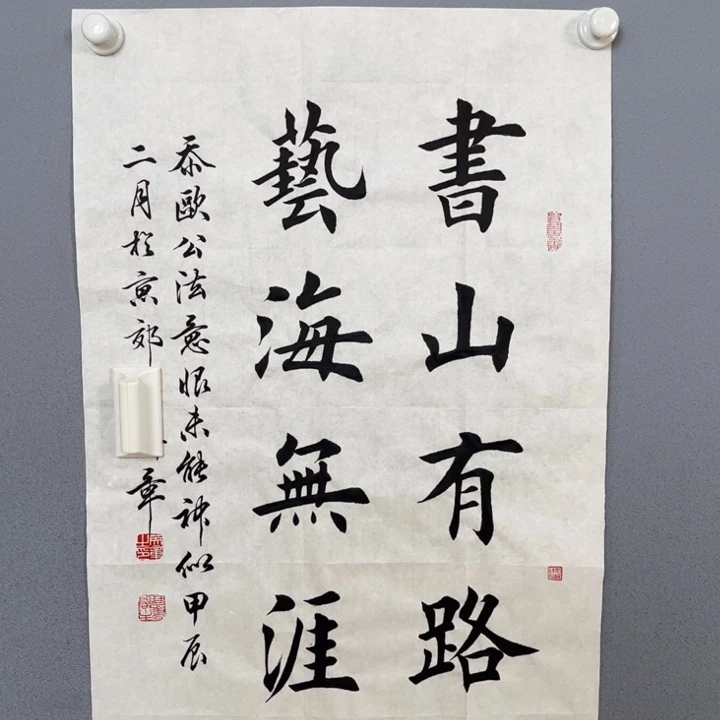 書山有路
藝海無涯
忝歐公法意恨未能神似甲辰
二月於京郊
章